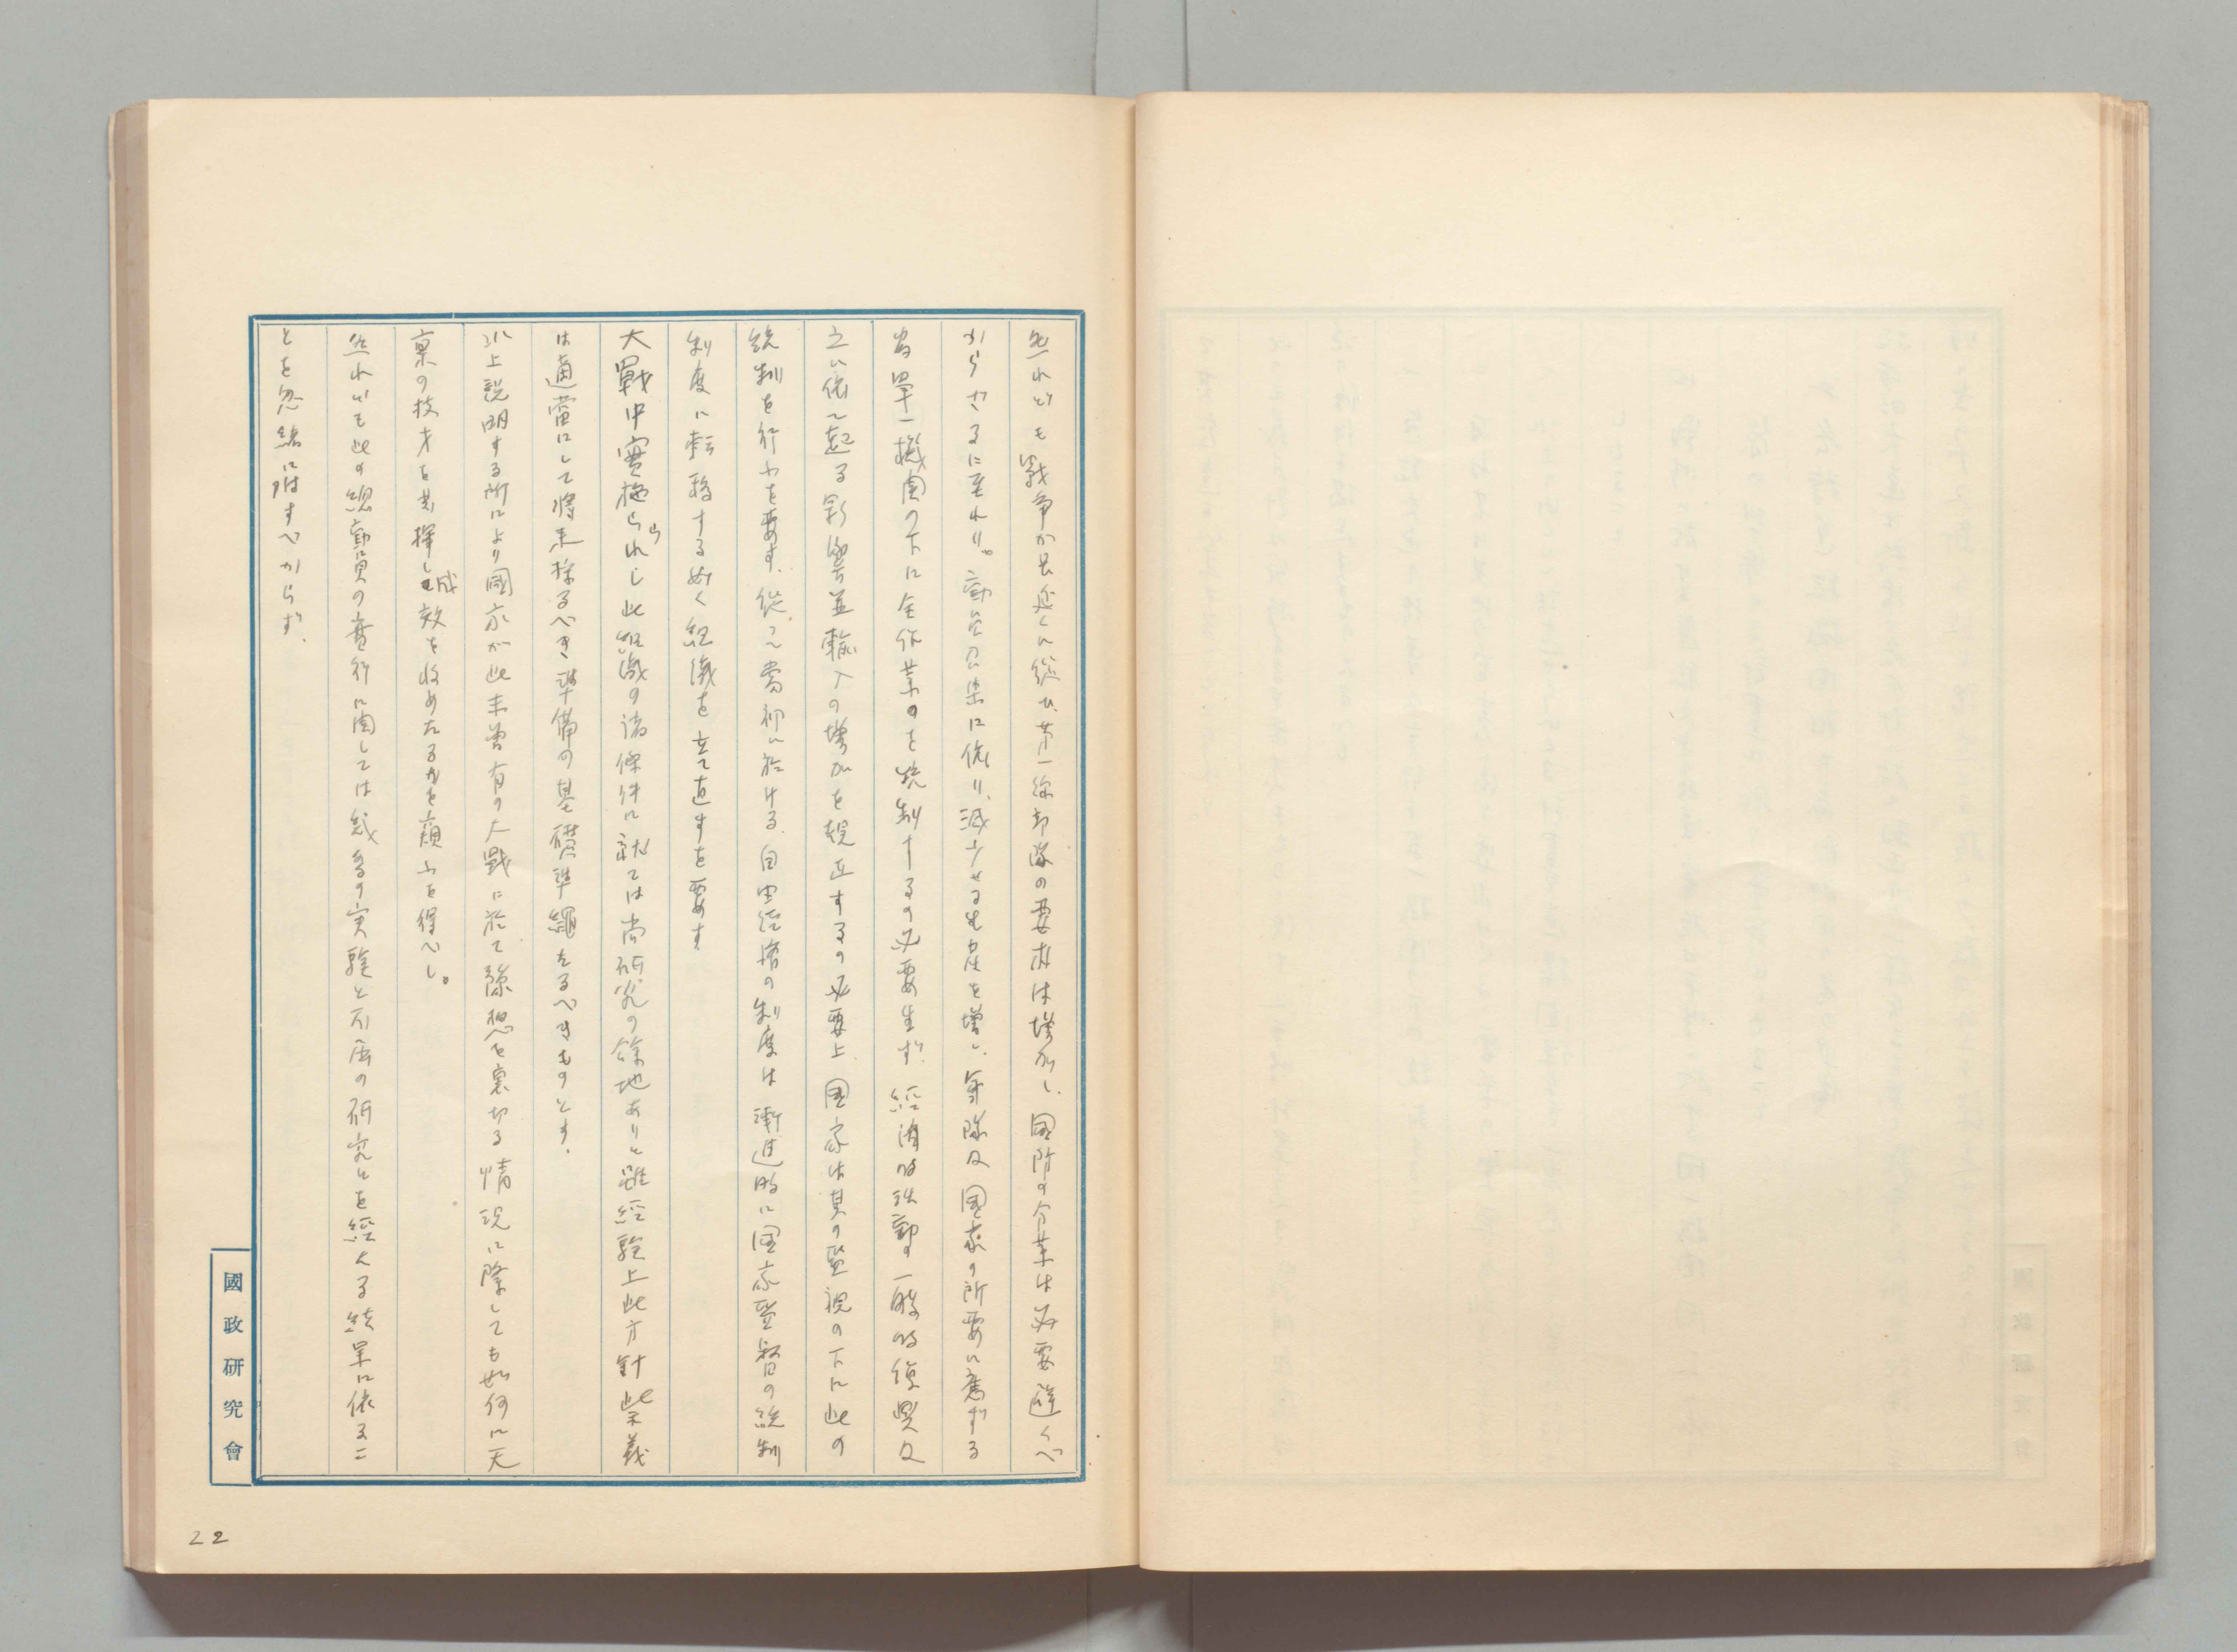 然れども戦争か長延くに従ひ、第一線部隊の要求は増加し、国防の分業は必要避くべ
からざるに至れり。動員公案に依り、減少せる生産を増し、軍隊及国家の所要に應ずる
為単一機関の下に全作業のを統制するの必要生ず、経済的活動の一般的復興及
之に依て起る影響並輸入の増加を規正するの必要上、国家は其の監視の下に此の
統制を行ふを要す、従て當初に於ける自由経済の制度は漸進的に国家監督の統制
制度に転移する如く組織を立て直すを要す
大戰中實施せられし此組織の諸條件に就ては尚研究の餘地ありと雖経験上此方針此主義
は適當にして将来採るべき準備の基礎準縄たるべきものとす、
以上説明する所により國家が此未曽有の大戰に於て豫想を裏切る情況に際しても如何に天
禀の技才を発揮し成效を収めたるかを窺ふを得べし。
然れども此の総動員の實行に関しては幾多の実験と不屈の研究とを経たる結果に依るこ
とを忽諸に附すべからず、
國政研究會
22